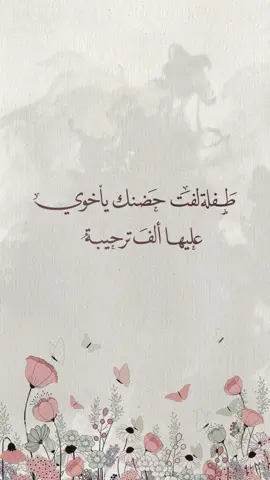 طَفلة لفت حَضنك يأخوي
عليها ألف ترحيبة